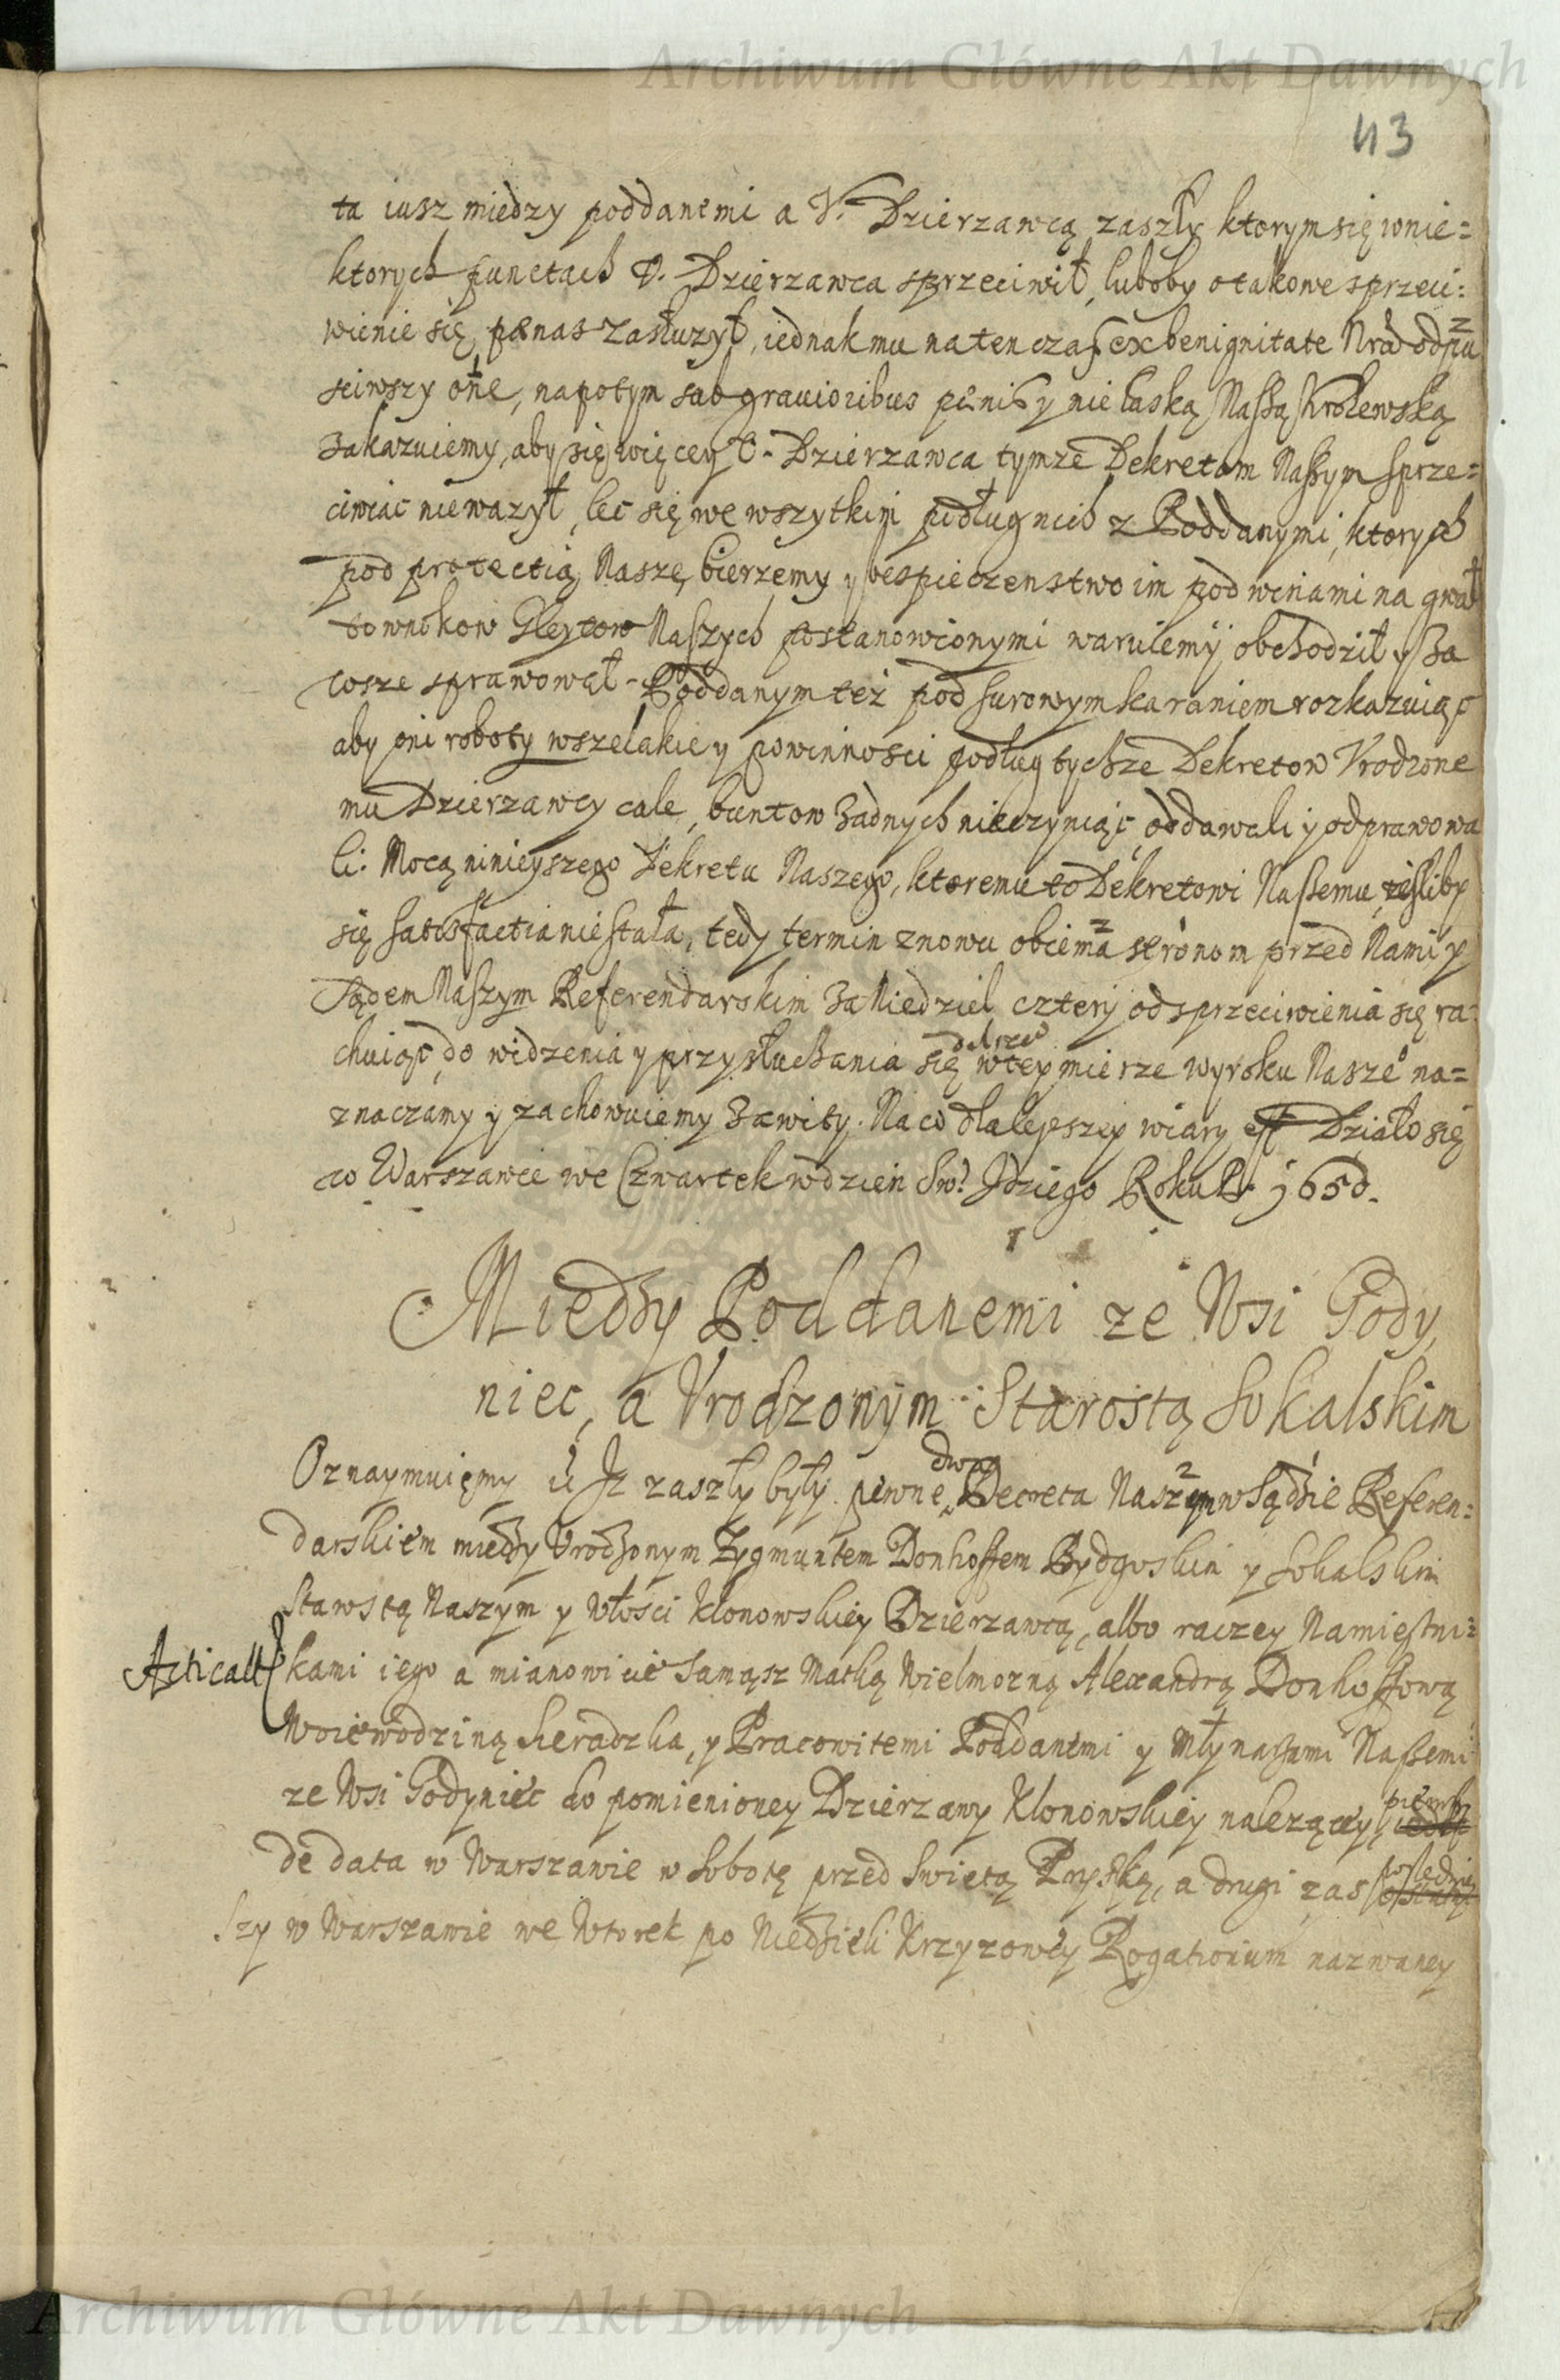 Archiwum Główne Akt Dawnych
43
ta iusz między poddanemi a V. Dzierzawcą zaszły ktorym się wnie=
ktorych punctach V. Dzierzawca sprzeciwił, luboby o takowe sprzeci:
wienie się pænas zasłuzył, iednak mu na ten czas ex benignitate Nra odpu
sciwszy one, napotym sub grauioribus pænis y nie łaską Naszą Krolewską
Zakazuiemy, aby się więcey V. Dzierzawca tymze Dekretom Naszym sprze=
ciwiac nie wazył, lec się we wszytkim podług nich z Poddanymi, ktorych
pod protectią Naszę bierzemy y bespieczenstwo im pod winami na gwał
townikow Gleytow Naszych postanowionymi waruiemy obchodził y Za
wsze sprawował. Poddanym też pod surowym karaniem rozkazuiąc
aby oni roboty wszelakie y powinnosci podług tychze Dekretow Vrodzone
mu Dzierzawcy cale, buntow Zadnych nieczyniąc, oddawali y odprawowa
li: Mocą ninieyszego Dekretu Naszego, ktoremu to Dekretowi Naszemu, iesliby
się satisfactia nie stała, tedy termin znowu obiema stronom przed Nami y
Sądem Naszym Referendarskim Za Niedziel cztery od sprzeciwienia się ra:
chuiąc, do widzenia y przysłuchania się
dalsze
w tey mierze wyroku Nasze° na=
znaczamy y zachowuiemy Zawity. Na co dla lepszey wiary est Działo się
w Warszawie we Czwartek w dzien Sw? Idziego Roku P. 1650.
Miedzy Poddanemi ze Wsi Gody
niec, a Vrodzonym Starostą Sokalskim
Oznaymuięmy ū Iz zaszły były pewne
dwoa
Decreta Naszym w Sądzie Referen:
darskiem miedzy Vrodzonym Zygmuntem Donhoffem Bydgoskim y Sokalskim
Starostą Naszym y Włosci Klonowskiey Dzierzawcą, albo raczey Namiestni:
Acticat
kami iego a mianowicie Samąsz Matką Wielmozną Alexandrą Donhoffową
Woiewodziną Sieradzka, y Pracowitemi Poddanemi y Młynarzami Naszemi
ze Wsi Godyniec do pomienioney Dzierzawy Klonowskiey nalezącey,
pierwszy
de data w Warszawie w Sobotę przed Swietą Pryską, a drugi zas
posledniey
szy w Warszawie we Wtorek po Niedzieli Krzyzowey Rogationum nazwaney
Archiwum Główne Akt Dawnych